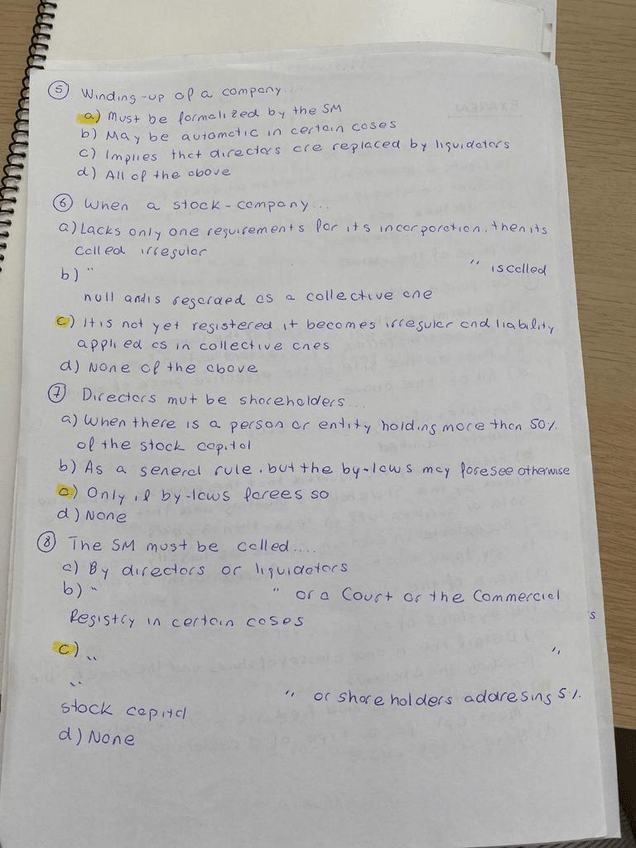 5 Winding-up of a company...
a) Must be formalized by the SM
b) May be automatic in certain cases
c) Implies that directors are replaced by liquidators
d) All of the above
6 When a stock-company...
a) Lacks only one requirements for its incorporation, then its
called irregular
b) " " is called
null and is regarded as a collective one
c) It is not yet registered it becomes irregular and liability
applied as in collective ones
d) None of the above
7 Directors mut be shareholders...
a) When there is a person or entity holding more than 50%
of the stock capital
b) As a general rule, but the by-laws may foresee otherwise
c) Only if by-laws forees so
d) None
8 The SM must be called....
a) By directors or liquidators
b) " " or a Court or the Commercial
Registry in certain cases
c) " "
" " or shareholders addresing 5%
stock capital
d) None